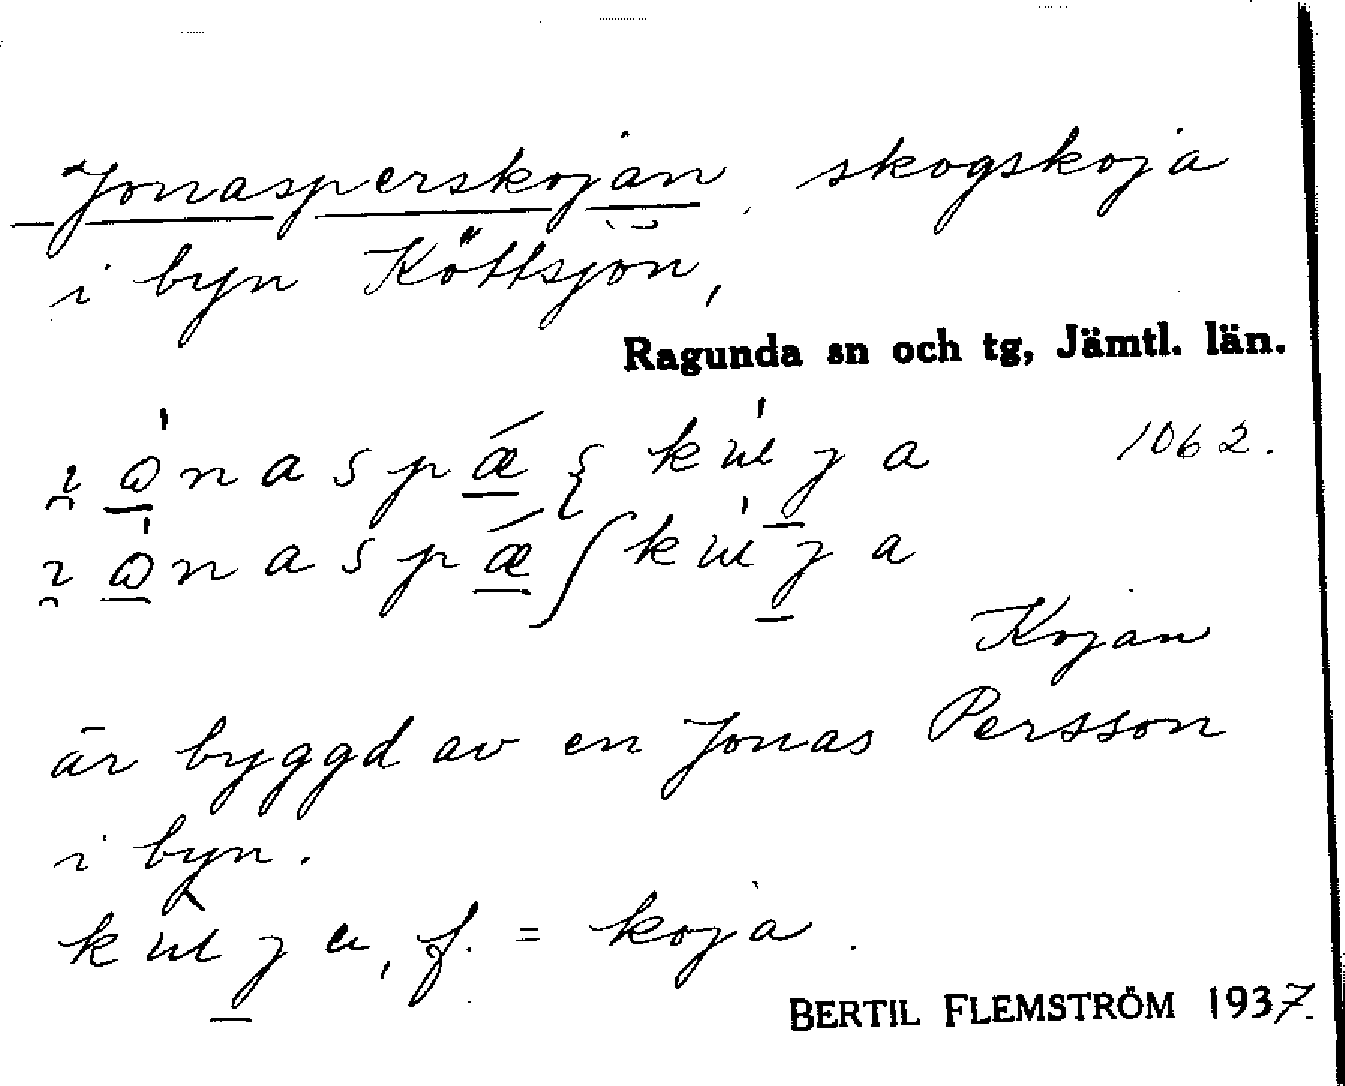 Jonasperskojan, skogskoja
i byn Köttsjön,
Ragunda sn och tg, Jämtl. län.
1062.
Kojan
är byggd av en Jonas Persson
i byn.
f. = koja.
BERTIL FLEMSTRÖM 1937.